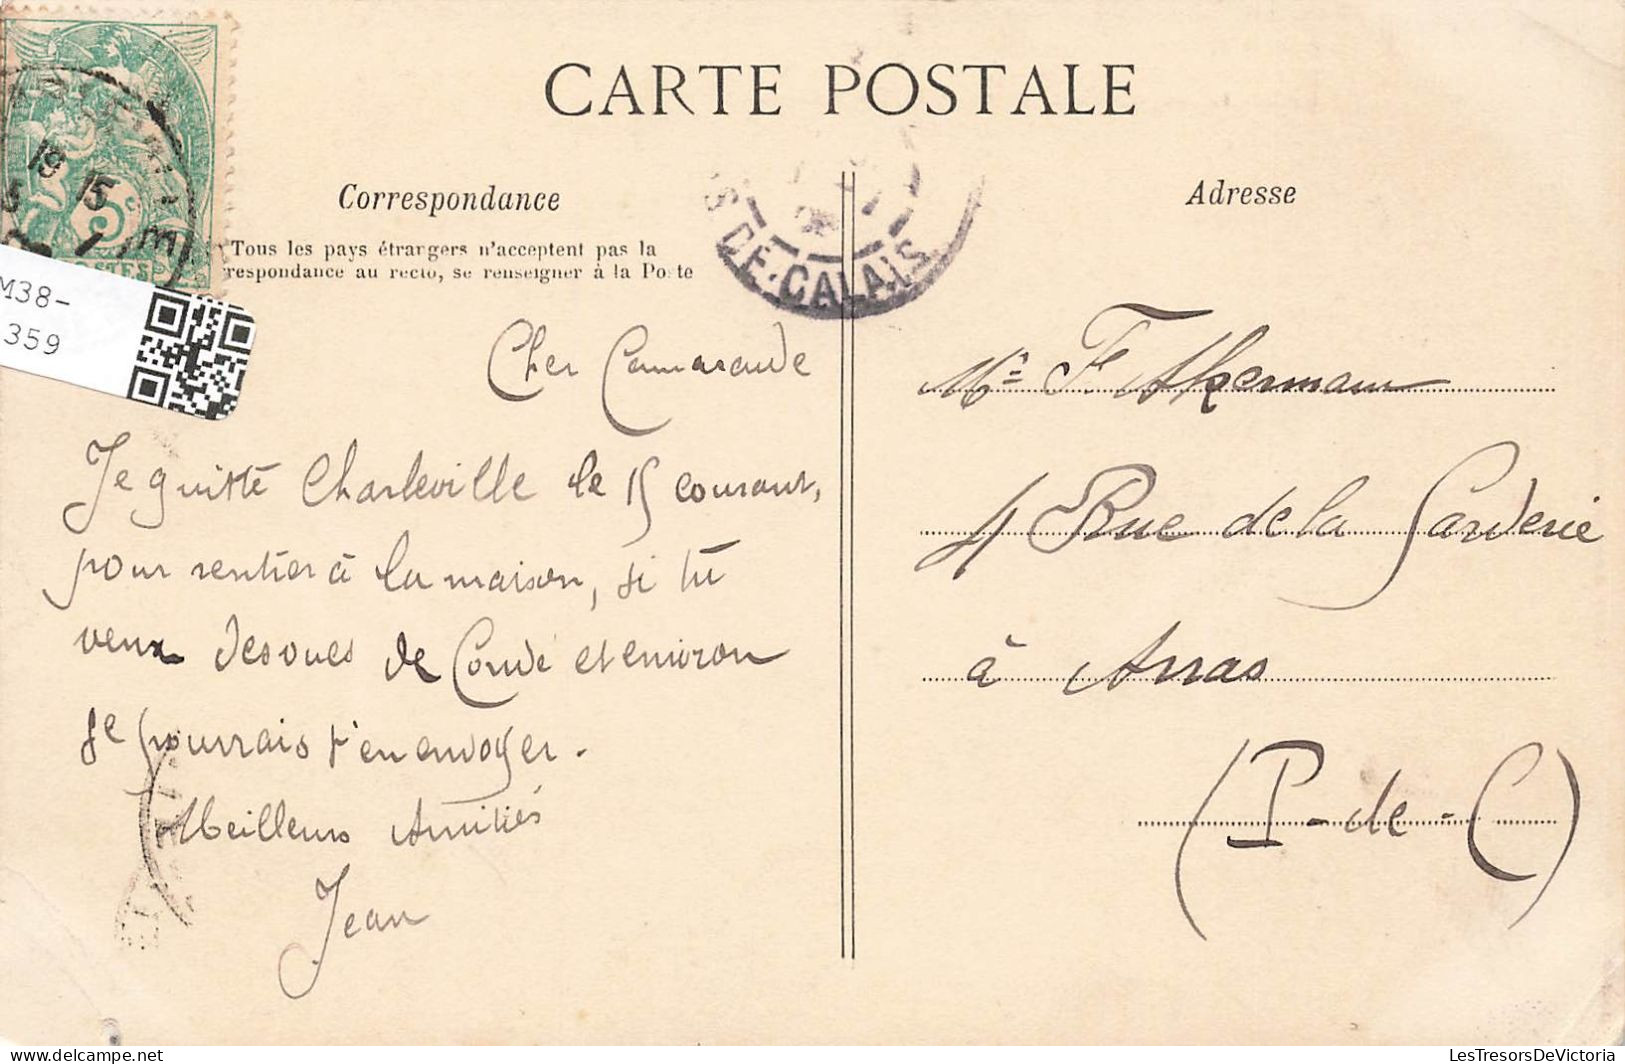 CARTE POSTALE
Correspondance
Tous les pays étrangers n'acceptent pas la
respondance au recto, se renseigner à la Poste
Adresse
19 15
5c
POSTES
S DE-CALAIS
M38-
359
Cher Camarade
Je quitte Charleville le 15 courant,
pour rentrer à la maison, si tu
veux des vues de Condé et environ
je pourrais t'en envoyer.
Meilleurs Amitiés
Jean
Mr F. Akermann
4 Rue de la Garderie
à Arras
(P-de-C)
LesTresorsDeVictoria.com